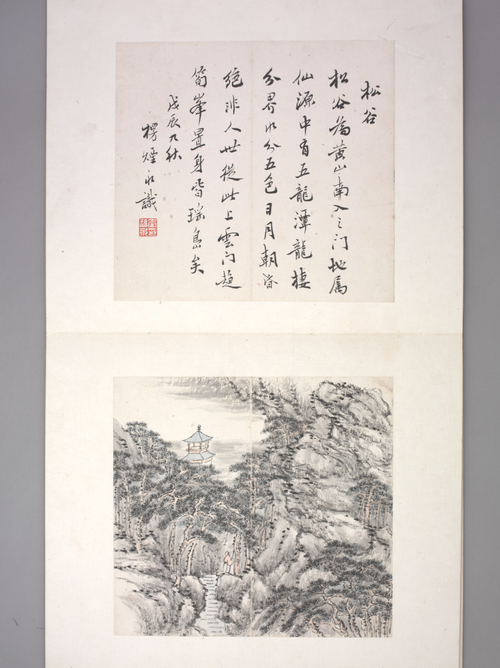 松谷
松谷為黃山南入之門地屬
仙源中有五龍潭龍棲
分界水分五色日月朝昏
絕非人世從此上雲門
筍峯置身瑤島矣
戊辰九秋
煙識